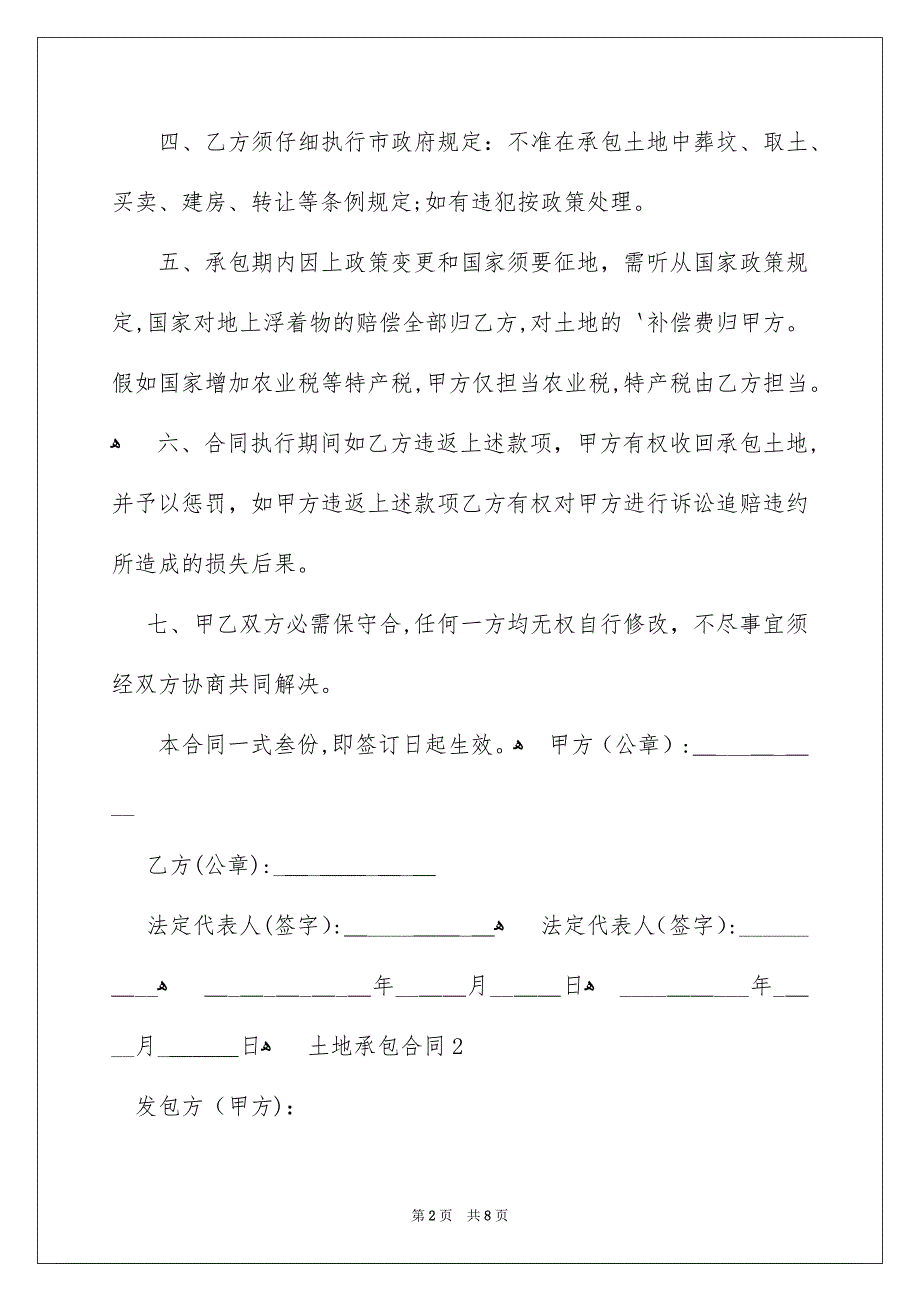 四、乙方须仔细执行市政府规定：不准在承包土地中葬坟、取土、
买卖、建房、转让等条例规定;如有违犯按政策处理。
五、承包期内因上政策变更和国家须要征地，需听从国家政策规
定,国家对地上浮着物的赔偿全部归乙方,对土地的‵补偿费归甲方。
假如国家增加农业税等特产税,甲方仅担当农业税,特产税由乙方担当。
ﻫ 六、合同执行期间如乙方违返上述款项，甲方有权收回承包土地,
并予以惩罚，如甲方违返上述款项乙方有权对甲方进行诉讼追赔违约
所造成的损失后果。
七、甲乙双方必需保守合,任何一方均无权自行修改，不尽事宜须
经双方协商共同解决。
本合同一式叁份,即签订日起生效。ﻫ 甲方（公章）:__________
__
乙方(公章):______________
法定代表人(签字):_____________ﻫ 法定代表人（签字）:______
____ﻫ ______________年______月______日ﻫ ___________年___
__月_______日ﻫ 土地承包合同2
发包方（甲方)：
第2页 共8页